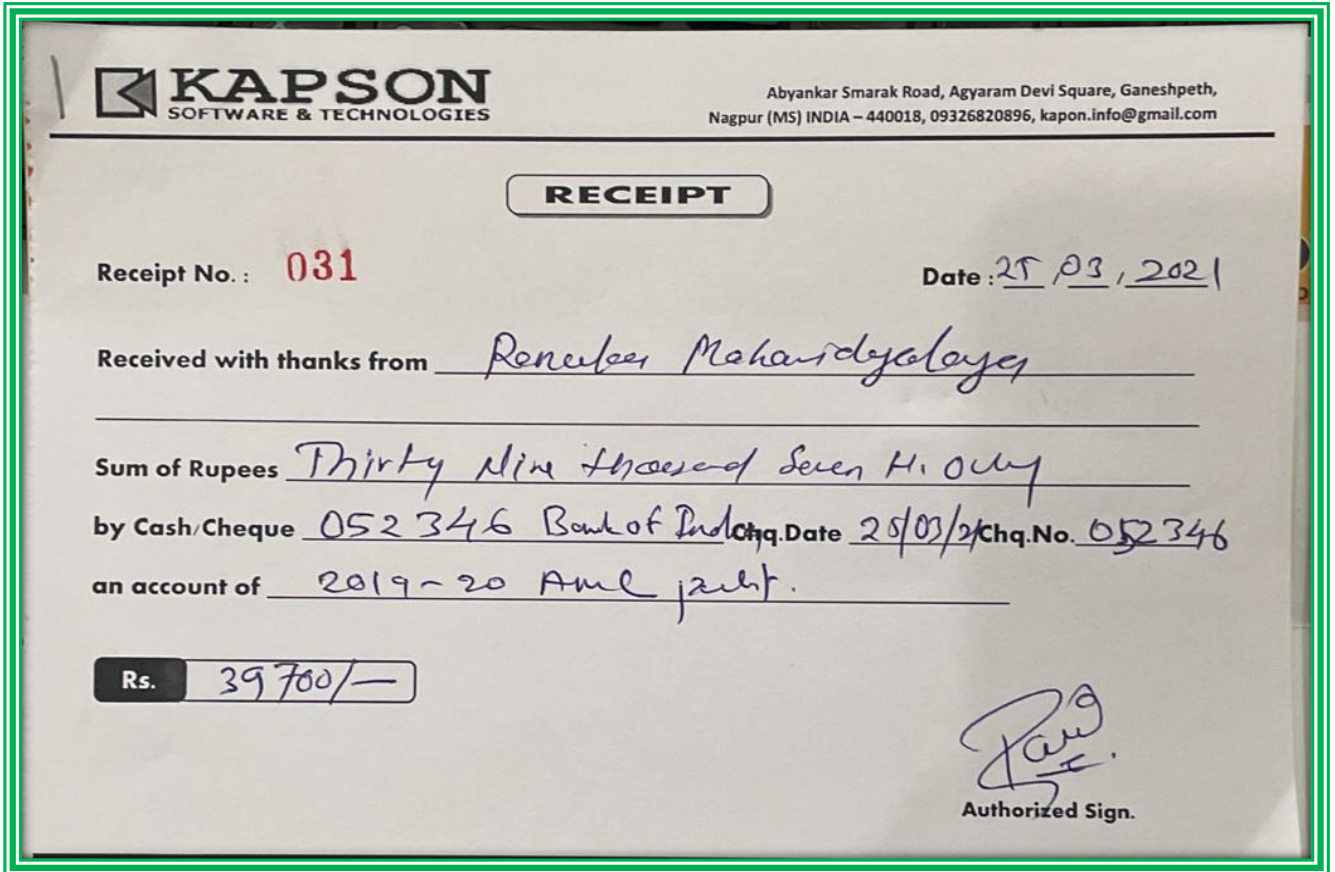 KAPSON
SOFTWARE & TECHNOLOGIES
Abyankar Smarak Road, Agyaram Devi Square, Ganeshpeth,
Nagpur (MS) INDIA – 440018, 09326820896, kapon.info@gmail.com
RECEIPT
Receipt No. : 031
Date : 25, 03, 2021
Received with thanks from Renuka Mahavidyalaya
Sum of Rupees Thirty Nine thousand Seven H. only
by Cash/Cheque 052346 Bank of India Chq.Date 25/03/21 Chq.No. 052346
an account of 2019-20 AMC
Rs. 39700/-
Authorized Sign.